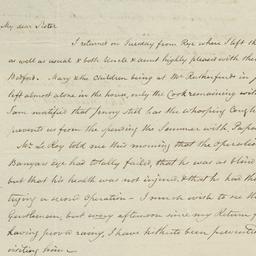 My dear Sister
I returned on Tuesday from Rye where I left th
as well as usual & both Uncle & aunt highly pleased with the
Bedford. Mary & the Children being at Mr Rutherfurds in
left almost alone in the house, only the Cook remaining wit
I am mortified that Jenny still has the whooping Cough
prevents us from the spending the Summer with Papa
Mr Le Roy told me this morning that the operatio
Banyar eye had totally failed, that he was as blind
but that his health was not injured, & that he had th
trying a second operation - I much wish to see the
Gentleman, but every afternoon since my Return
having proved rainy, I have hitherto been prevente
visiting him